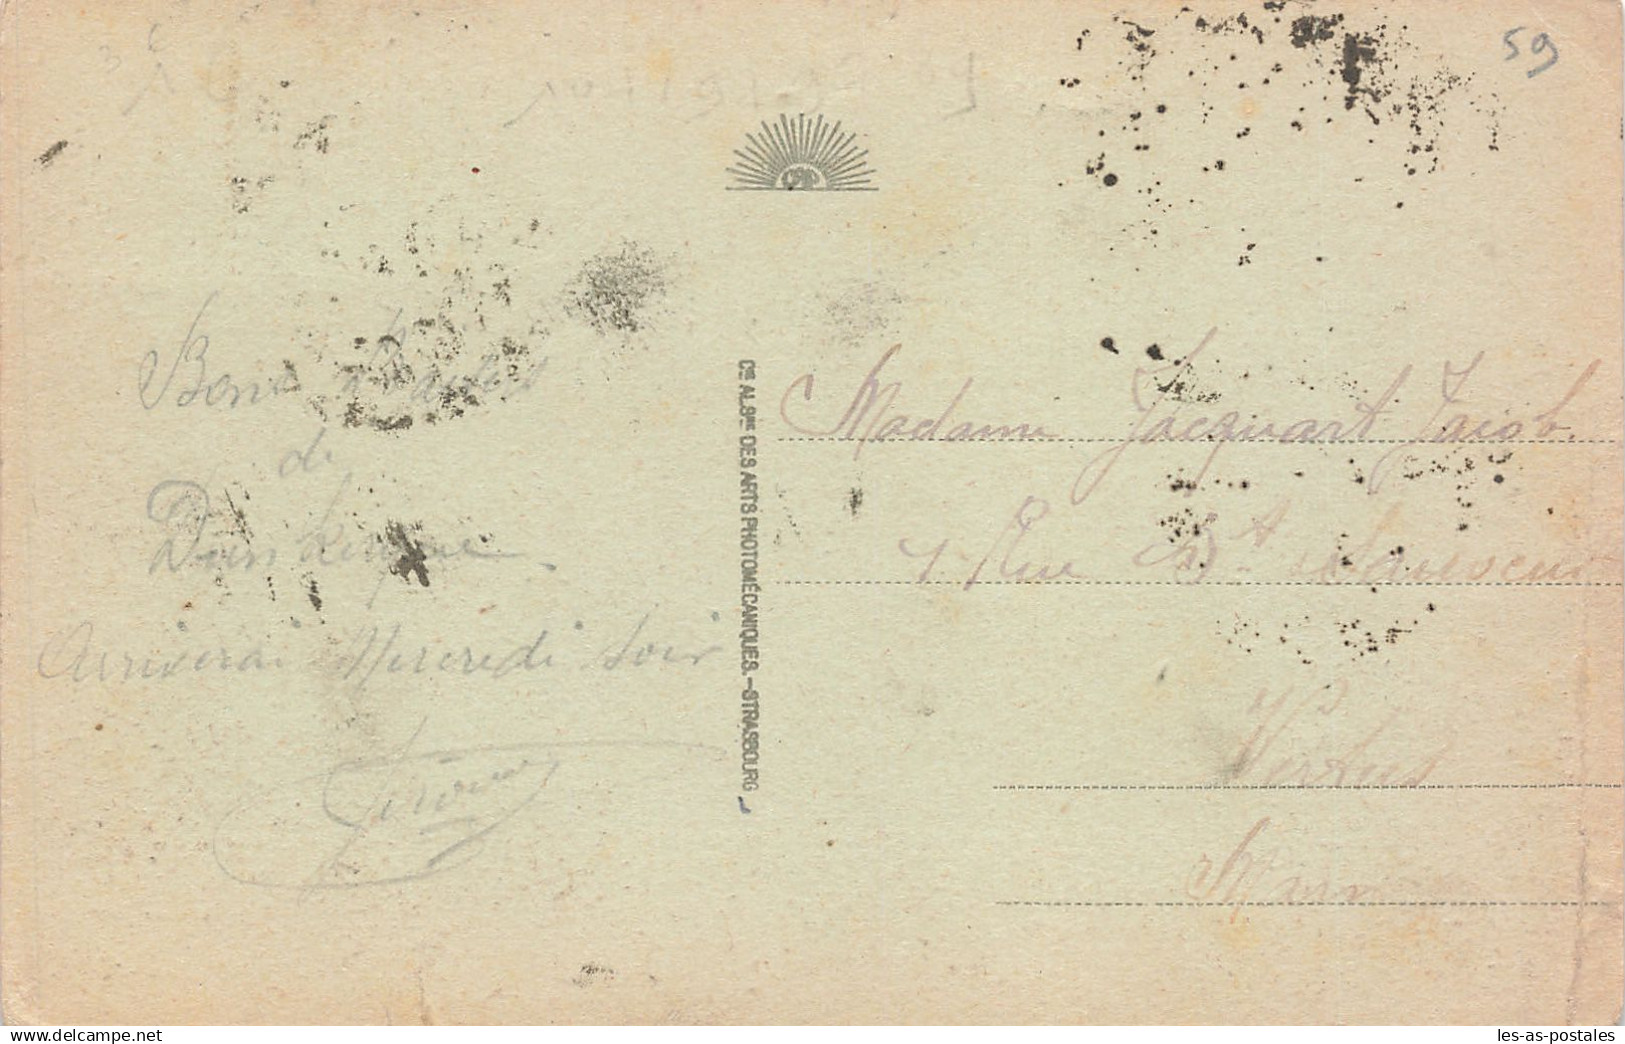 59
Bons Baisers
de
Dunkerque
Arriverai Mercredi soir
Jérôme
Cie ALSne DES ARTS PHOTOMÉCANIQUES.-STRASBOURG
Madame Jacquart Jacob
Rue St Sauveur
Vertus
Marne
www.delcampe.net
les-as-postales